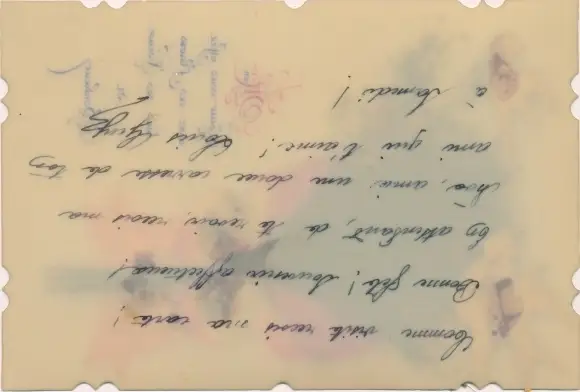 Comme visite recois ma carte!
Bonne fête! Souvenir affectueux!
En attendant, de te revoir, recois ma
amie, une douce caresse de ton
ami qui t'aime! Louis
à Samedi!